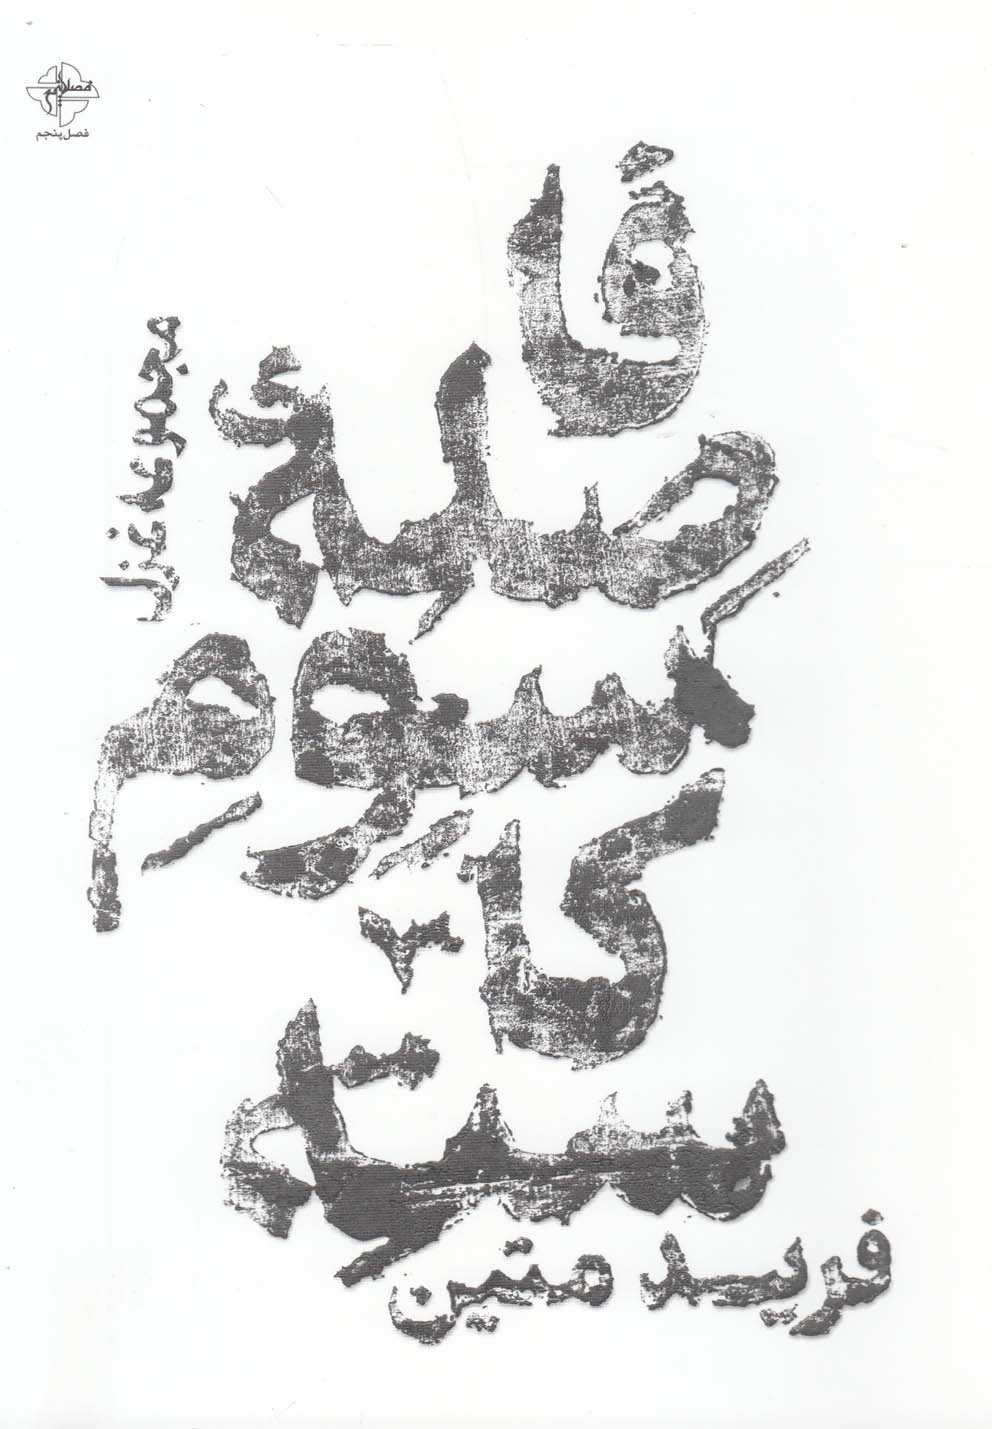 فصل پنجم
فا
صلهٔ
کسوم
کا
سته
مجموعه غزل
فرید متین